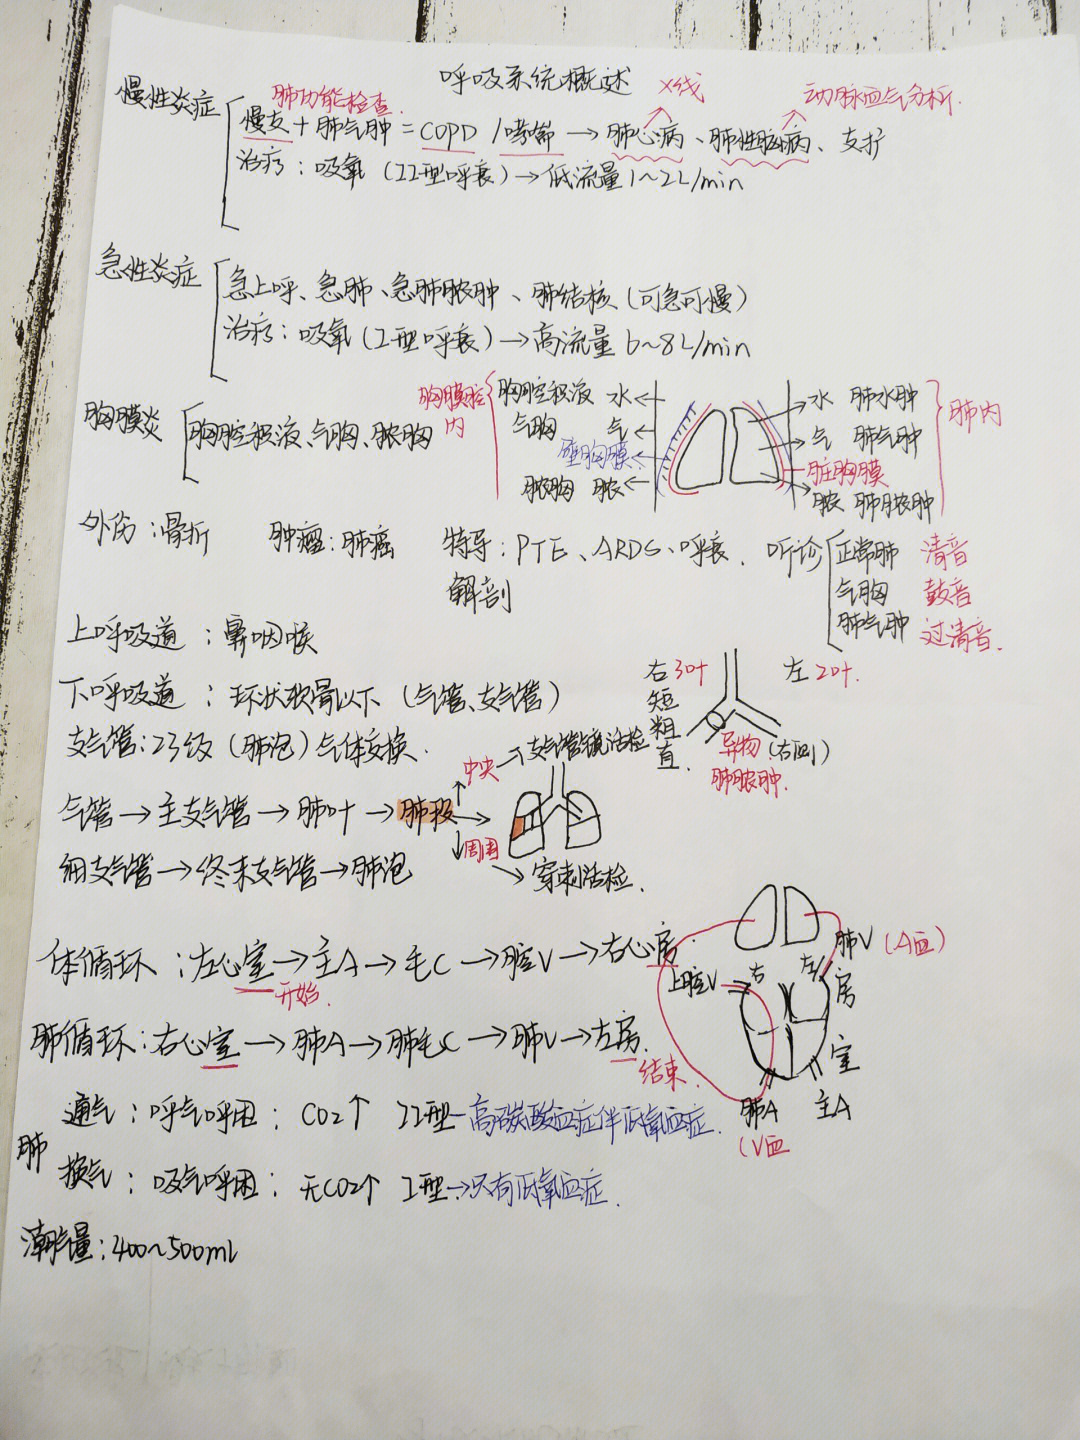 呼吸系统概述
慢性炎症
肺功能检查.
X线
动脉血气分析.
慢支+肺气肿=COPD/哮喘→肺心病、肺性脑病、支扩
治疗:吸氧(II型呼衰)→低流量1~2L/min
急性炎症
急上呼、急肺、急肺脓肿、肺结核(可急可慢)
治疗:吸氧(I型呼衰)→高流量6~8L/min
胸膜炎
胸腔积液、气胸、脓胸
胸膜腔内
胸腔积液 水←
气胸 气←
壁胸膜←
脓胸 脓←
→水 肺水肿
→气 肺气肿
→脏胸膜
→脓 肺脓肿
肺内
外伤:骨折 肿瘤:肺癌 特导:PTE、ARDS、呼衰.
听诊
正常肺 清音
气胸 鼓音
肺气肿 过清音.
解剖
上呼吸道:鼻咽喉
下呼吸道:环状软骨以下(气管、支气管)
右3叶
短粗直.
左2叶.
异物(右侧)
肺脓肿.
支气管:23级(肺泡)气体交换.
气管→主支气管→肺叶→肺段→
中央→支气管镜活检
周围→穿刺活检.
细支气管→终末支气管→肺泡
体循环:左心室→主A→毛C→腔V→右心房
开始.
肺循环:右心室→肺A→肺毛C→肺V→左房.
结束.
上腔V
右
左
肺V(A血)
房
室
肺A
(V血
主A
肺
通气:呼气呼困:CO2↑ II型-高碳酸血症伴低氧血症.
换气:吸气呼困:无CO2↑ I型→只有低氧血症.
潮气量:400~500ml